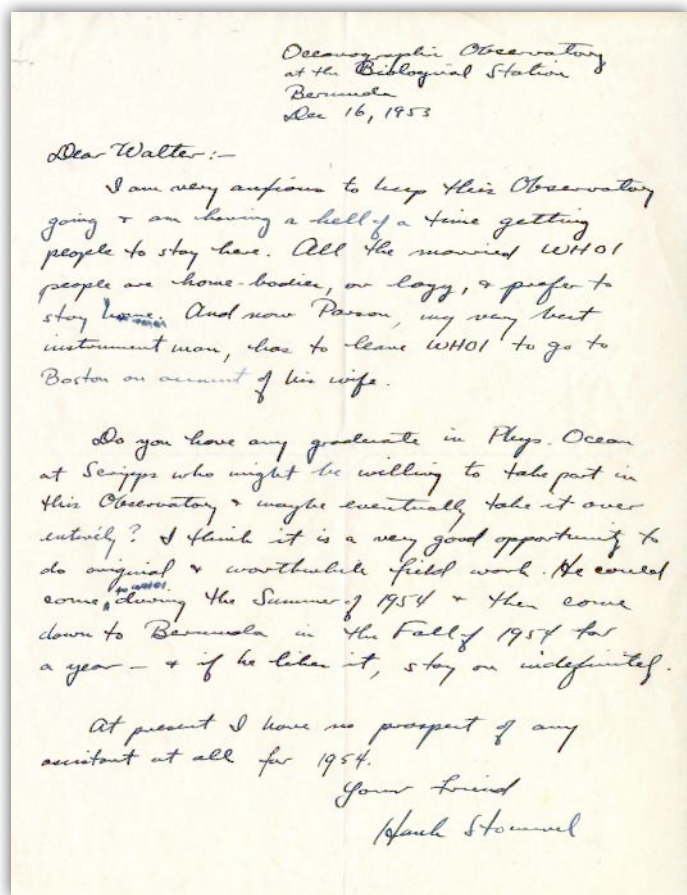 Oceanographic Observatory
at the Biological Station
Bermuda
Dec 16, 1953
Dear Walter:-
I am very anxious to keep this Observatory
going & am having a hell of a time getting
people to stay here. All the married WHOI
people are home-bodies, or lazy, & prefer to
stay home. And now Parson, my very best
instrument man, has to leave WHOI to go to
Boston on account of his wife.
Do you have any graduate in Phys. Ocean
at Scripps who might be willing to take part in
this Observatory & maybe eventually take it over
entirely? I think it is a very good opportunity to
do original & worthwhile field work. He could
come to WHOI during the Summer of 1954 & then come
down to Bermuda in the Fall of 1954 for
a year — & if he likes it, stay on indefinitely.
At present I have no prospect of any
assistant at all for 1954.
Your friend
Hank Stommel